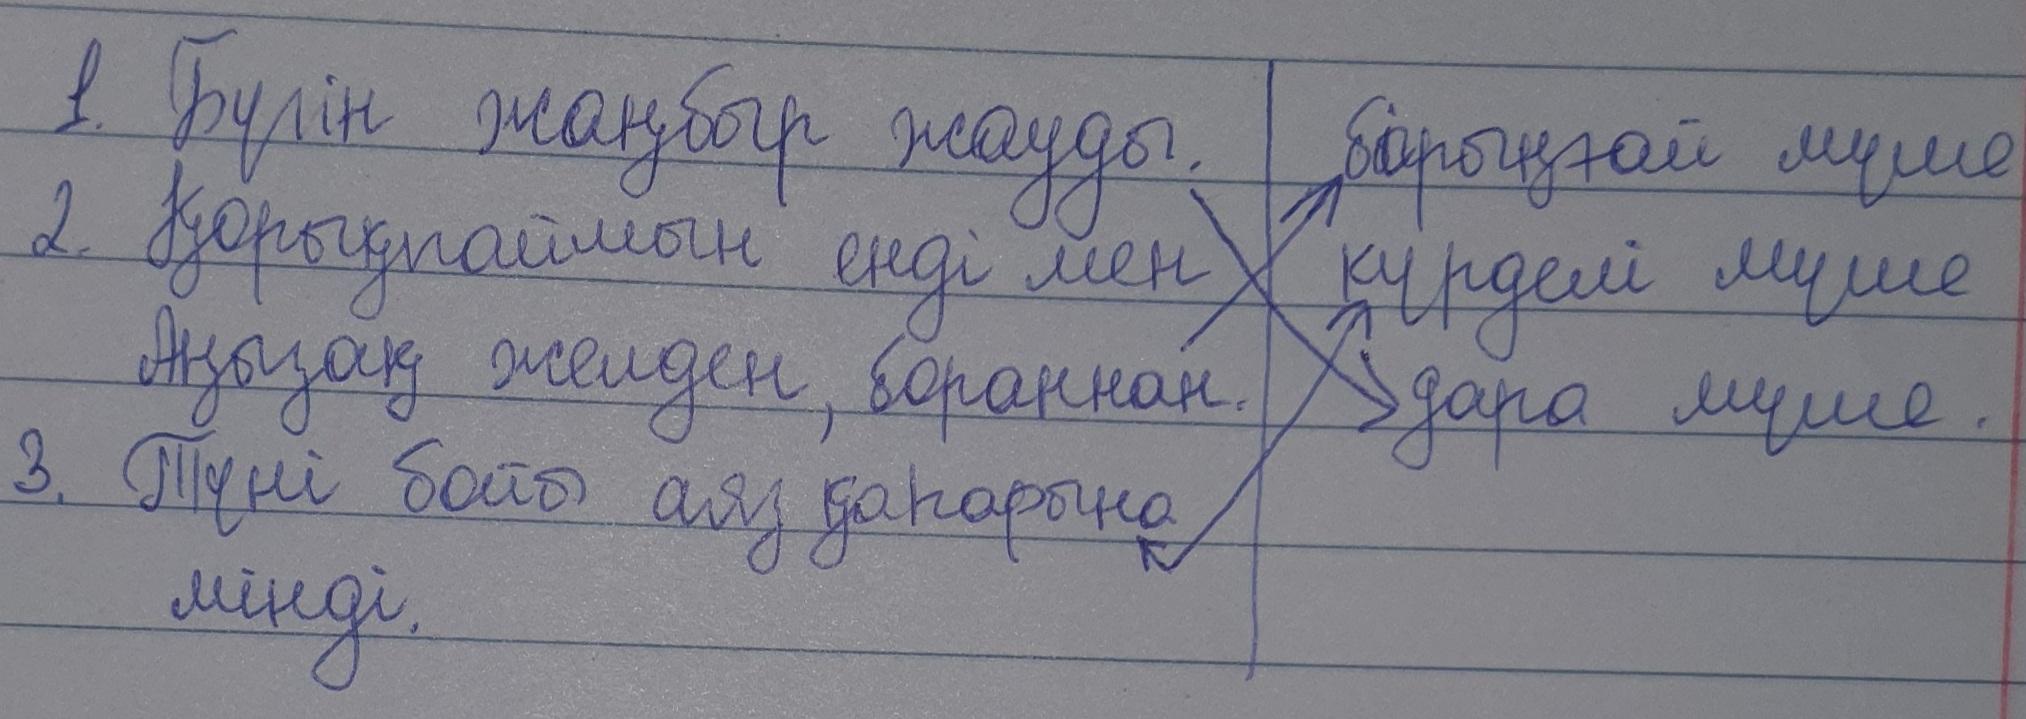 1. Бүгін жаңбыр жауды. бірыңғай мүше
2. Қорықпаймын енді мен күрделі мүше
Аңызақ желден, бораннан. дара мүше.
3. Түні бойы аяз қаһарына
мінді.